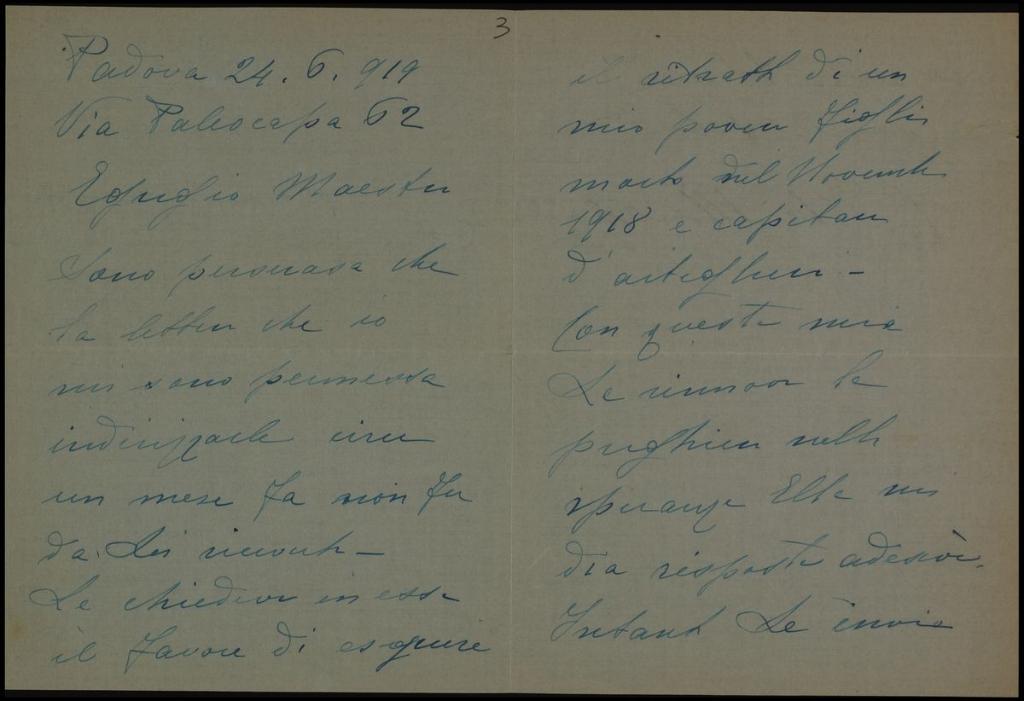 3
Padova 24. 6. 919
Via Paleocapa 62
Egregio Maestro
Sono persuasa che
la lettera che io
mi sono permessa
indirizzarle circa
un mese fa non fu
da Lei ricevuta -
Le chiedevo in essa
il favore di eseguire
il ritratto di un
mio povero figlio
morto nel Novembre
1918 e capitano
d'artiglieria -
Con questa mia
Le rinnovo la
preghiera nella
speranza Ella mi
dia risposta adesiva.
Intanto Le invio